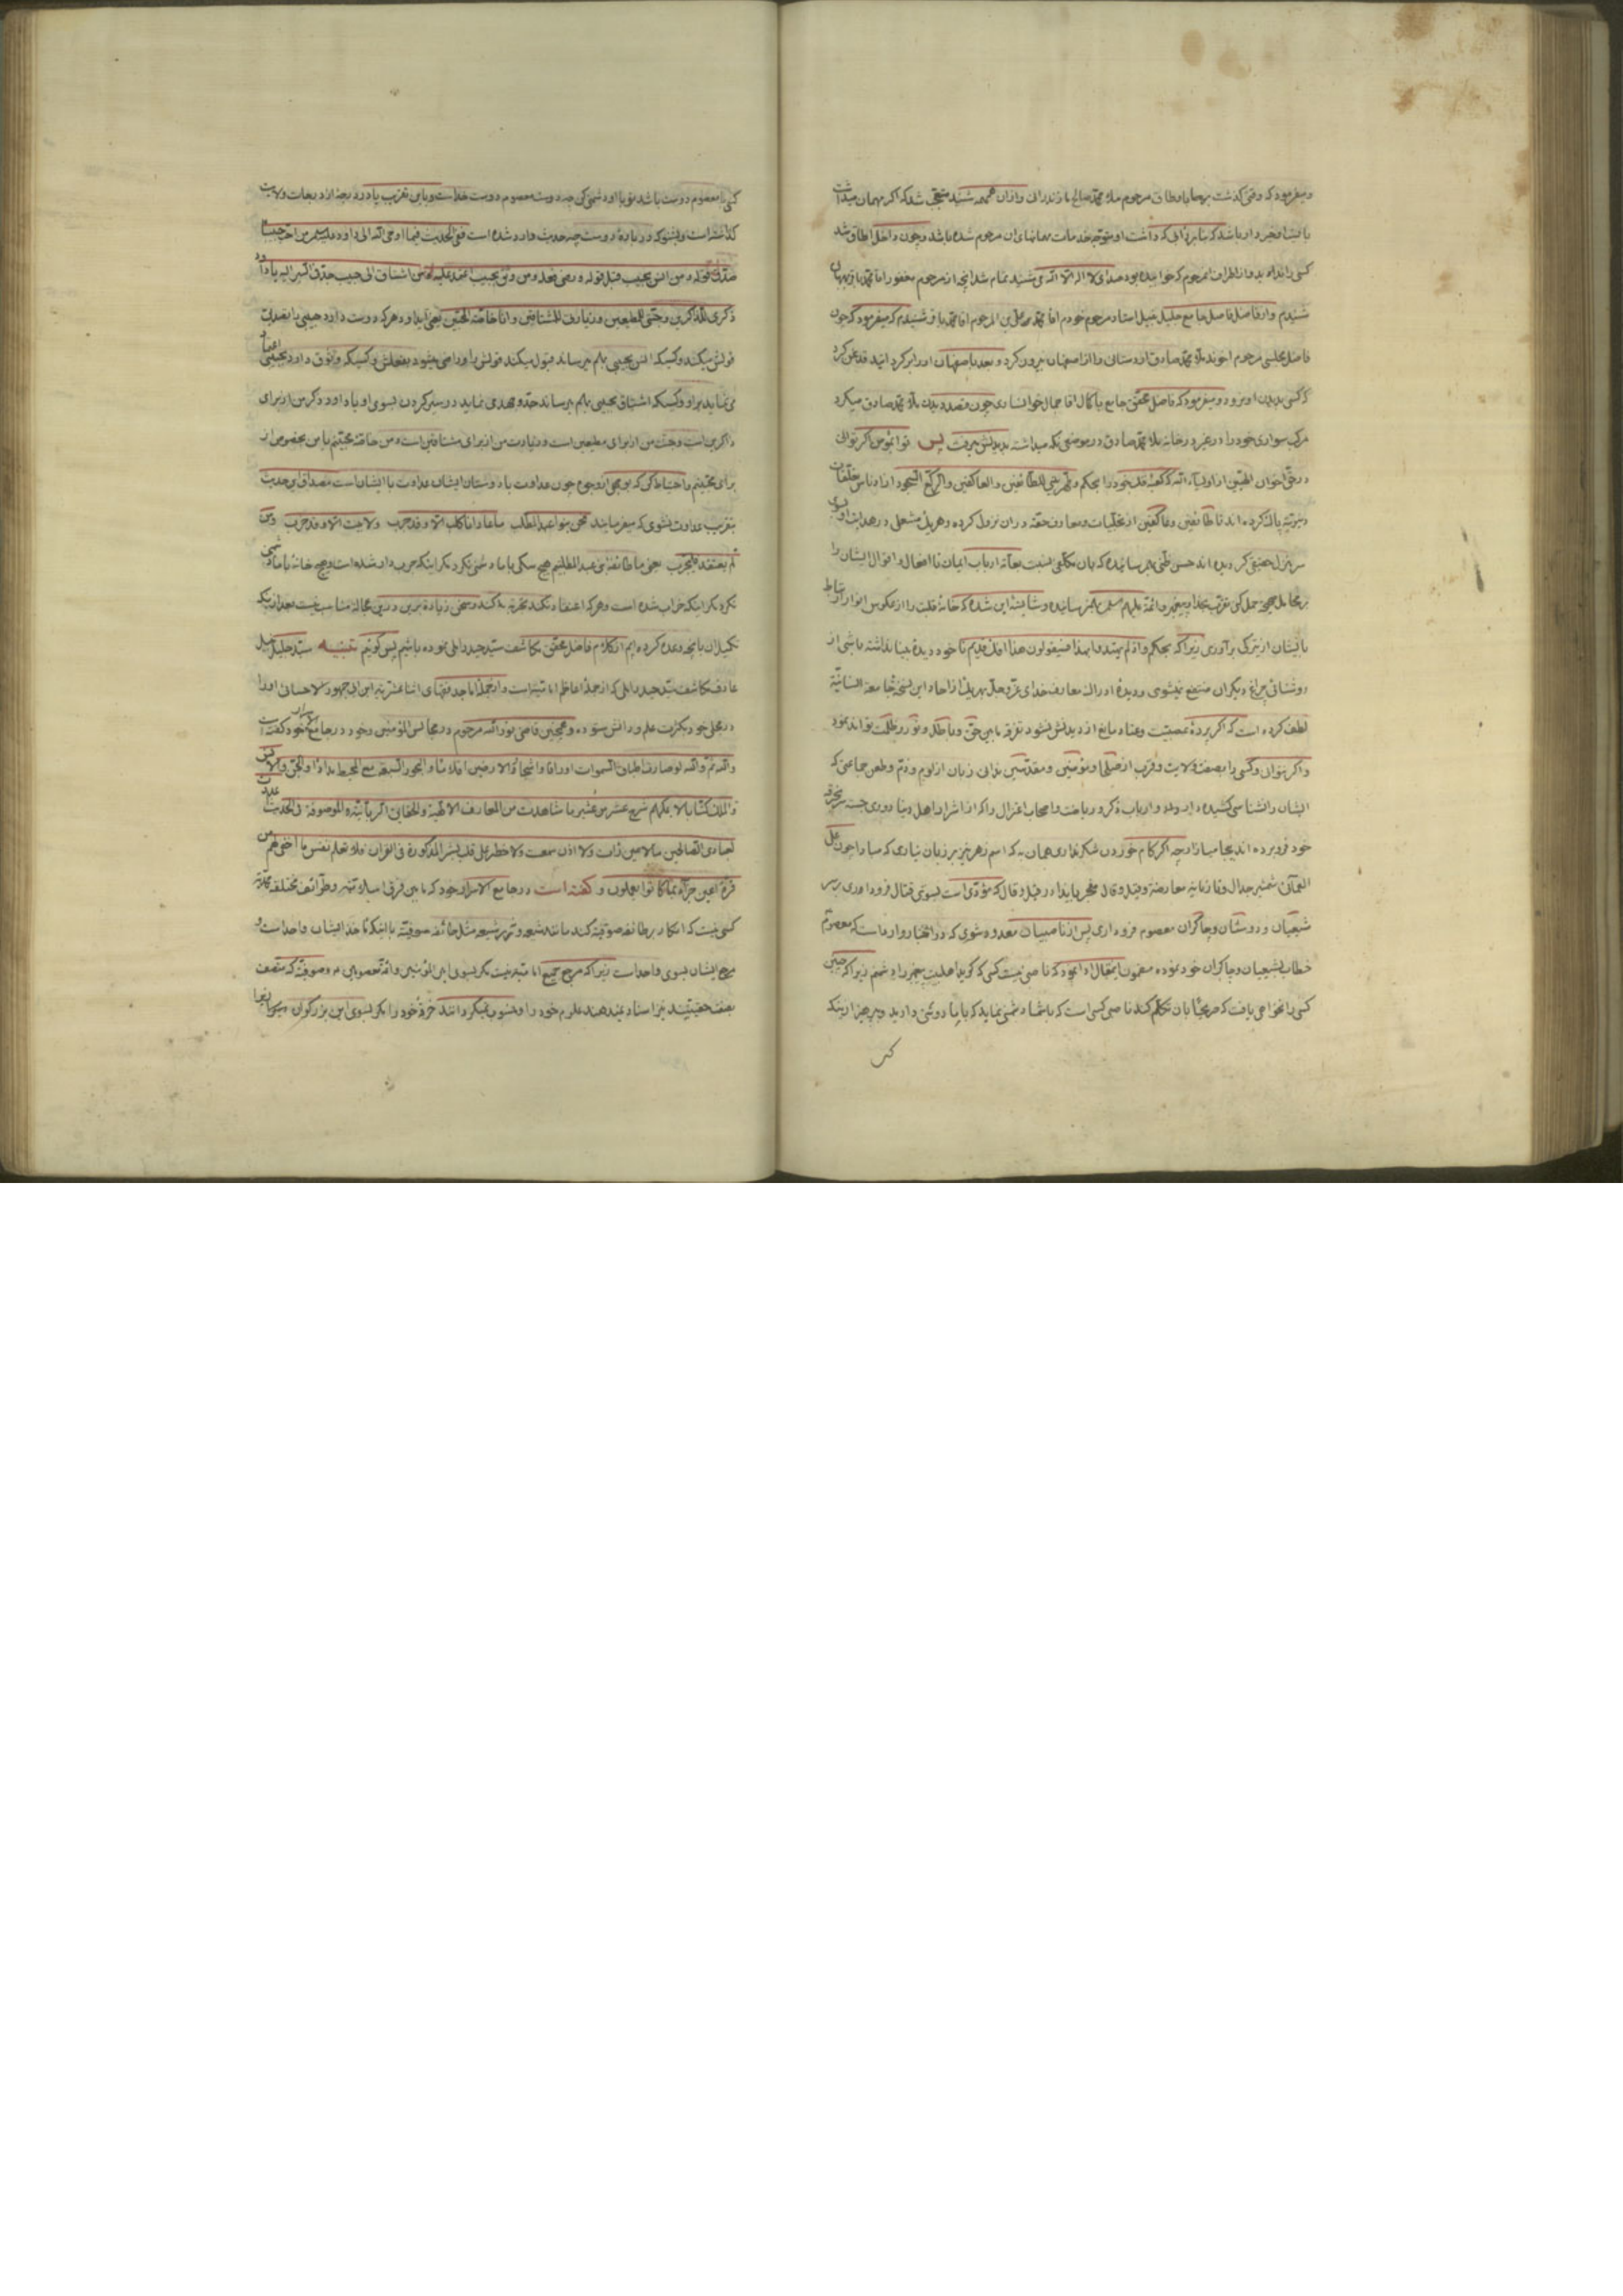 و میفرمود که وقتی گذشت بر ما باوطاق مرحوم ملا محمد صالح مازندرانی و از ان همهمه شنید متعجب شد که اگر مهمان میداشت
باید او خبردار باشد که بنا بر که داشت او متوجه خدمات مهمانهای ان مرحوم شده باشد و چون داخل اطاق شد
کسی را ندید و از اطراف مرحوم که خوابیده بود صدای لا اله الا الله می شنید تمام شد انچه از مرحوم مغفور اقا محمد باقر
شنیدم و از فاضل جامع جلیل نبیل استاد مرحوم خودم اقا محمد علی بن المرحوم اقا محمد باقر شنیدم که میفرمود که چون
فاضل مجلسی مرحوم اخوند ملا محمد صادق اردستانی را از اصفهان بیرون کرد و بعد باصفهان او را برگردانید قدغن کرد
که کسی بدیدن او نرود و میفرمود که فاضل محقق جامع با کمال اقا جمال خوانساری چون قصد دیدن ملا محمد صادق میکرد
مرکب سواری خود را در غیر در خانه ملا محمد صادق در موضعی نگه میداشته بدیدنش میرفت پس تو ای مؤمن اگر توانی
در حق اخوان از اولیاء الله که کعبه قلب خود را بحکم و طهر بیتی للطائفین و العاکفین و الرکع السجود از ادناس
پاک کرده اند تا طائفین و عاکفین از تجلیات و معارف حقه در ان نزول کرده و هر یک مشعلی در هدایت
سر منزل حقیقی گردیده اند حسن ظنی بهم رسانیده که بان مکلفی نسبت بعامه ارباب ایمان تا افعال و اقوال ایشان را
بر محامل صحیح حمل کنی تقرب بخدا و پیغمبر و ائمه علیهم السلام بهم رسانیده و شایسته این شده که خانه قلبت را از عکوس انوار
بایشان از تیرگی براوری زیرا که بحکم و اذ لم یهتدوا به فسیقولون هذا افک قدیم تا خود دیده بینا نداشته باشی از
روشنائی چراغ دیگران منتفع نمیشوی و دیده ادراک معارف خدای عز و جل بهر یک از احاد این نسخه جامعه انسانیة
لطف کرده است که اگر پرده عصبیت و عناد مانع از دیدنش نشود تفرقه مابین حق و باطل و نور و ظلمت تواند نمود
و اگر نتوانی و کسی را بصفت ولایت و قرب از صلحا و مؤمنین و مقدسین ندانی زبان از لوم و ذم و طعن جماعتی که
ایشان را نشناسی کشیده دار و اوراد و ارباب ذکر و ریاضت و اصحاب اعتزال را که از اشرار اهل دنیا دوری جسته
خود فرو برده اند بیجا میازار چه اگر کام خوردن شکر نداری همان به که اسم زهر نیز بر زبان نیاری که مبادا چون
شمشیر جدال و تازیانه معارضة و قیل و قال منجر باید در قیل و قال که مؤدی است بسوی قتال فرود اوری بر سر
شیعیان و دوستان و چاکران معصوم فرود اری پس از ناصبیان معدود شوی که در اخبار وارد است که معصوم
خطاب بشیعیان و چاکران خود نموده مضمون این مقال ادا نمود که ناصبی نیست کسی که گوید اهلبیت پیغمبر را دشمنم زیرا که چنین
کسی را نخواهی یافت که صریحا بان تکلم کند ناصبی کسی است که با شما دشمنی نماید که با ما دوستی دارید و بپرهیز از اینکه
کسی
کسی با معصوم دوست باشد تو با او دشمنی کنی چه دوست معصوم دوست خداست و باین تقریب یا در درجه از درجات ولایت
گذشته است و بشنو که در باره دوست چه حدیث وارد شده است ففی الحدیث فیما اوحی الله الی داود من احب حبیبا
صدق قوله و من انس بحبیب قبل قوله و رضی فعله و من وثق بحبیب اعتمد علیه و من اشتاق الی حبیب جد فی السیر الیه یا داود
ذکری للذاکرین و جنتی للمطیعین و زیارتی للمشتاقین و انا خاصة المحبین یعنی ای داود هر که دوست دارد حبیبی را تصدیق
قولش میکند و کسیکه انس بحبیبی بهم میرساند قبول میکند قولش را و راضی میشود بفعلش و کسیکه وثوق دارد بحبیبی اعتماد
می نماید بر او و کسیکه اشتیاق بحبیبی بهم میرساند جد و جهدی نماید در سیر کردن بسوی او یا داود ذکر من از برای
ذاکرین است و جنت من از برای مطیعین است و زیارت من از برای مشتاقین است و من خاصه محبینم یا من مخصوص از
برای محبینم و احتیاط کن که بو بجهی از وجوه چون عداوت با دوستان ایشان عداوت با ایشان است مصداق این حدیث
بتقریب عداوت نشوی که میفرمایند نحن بنو عبد المطلب ما عادانا کلب الا و قد جرب و لا بیت الا و قد خرب و من
لم یعتقد فلیجرب یعنی ما طائفه بنی عبد المطلبیم هیچ سگی با ما دشمنی نکرد مگر اینکه جرب دار شده است و هیچ خانه با ما دشمنی
نکرد مگر اینکه خراب شده است و هر که اعتقاد نکند تجربه بکند و سخن زیاده برین درین عجاله مناسب نیست بعد از اینکه
تکمیل ان بانچه وعده کرده ایم از کلام فاضل محقق مکاشف سید حیدر املی نموده باشیم پس گوئیم تنبیه سید جلیل نبیل
عارف مکاشف سید حیدر املی که از جمله اعاظم امامیة است و از جمله اماجد فقهای اثنا عشریه ابن ابی جمهور لاحسائی او را
در مجلی خود بکثرت علم و دانش ستوده و همچنین قاضی نور الله مرحوم در مجالس المؤمنین و خود در جامع الاسرار خود گفته است
والله ثم والله لو صارت اطباق السموات اوراقا و اشجار الارضین اقلاما و البحور السبعة مع المحیط مدادا و الجن و الانس
و الملک کتابا لا یمکنهم شرح عشر من عشیر ما شاهدت من المعارف الالهیة و الحقایق الربانیة الموصوفة فی الحدیث
لعبادی الصالحین ما لا عین رات و لا اذن سمعت و لا خطر علی قلب بشر المذکورة فی القران فلا تعلم نفس ما اخفی لهم من
قرة اعین جزاء بما کانوا یعملون و گفته است در جامع الاسرار خود که مابین فرق اسلامیه و طوائف مختلفه محمدیه
کسی نیست که انکار بر طائفه صوفیه کند مانند شیعه و نیز بر شیعه مثل طائفه صوفیه با اینکه ماخذ ایشان واحد است و
مرجع ایشان بسوی واحد است زیرا که مرجع جمیع امامیه نیست مگر بسوی امیر المؤمنین و ائمه معصومین و صوفیه که متصف
بصفت حقیقتند نیز اسناد نمیدهند علوم خود را و منسوب نمیگردانند خرقه خود را مگر بسوی این بزرگواران